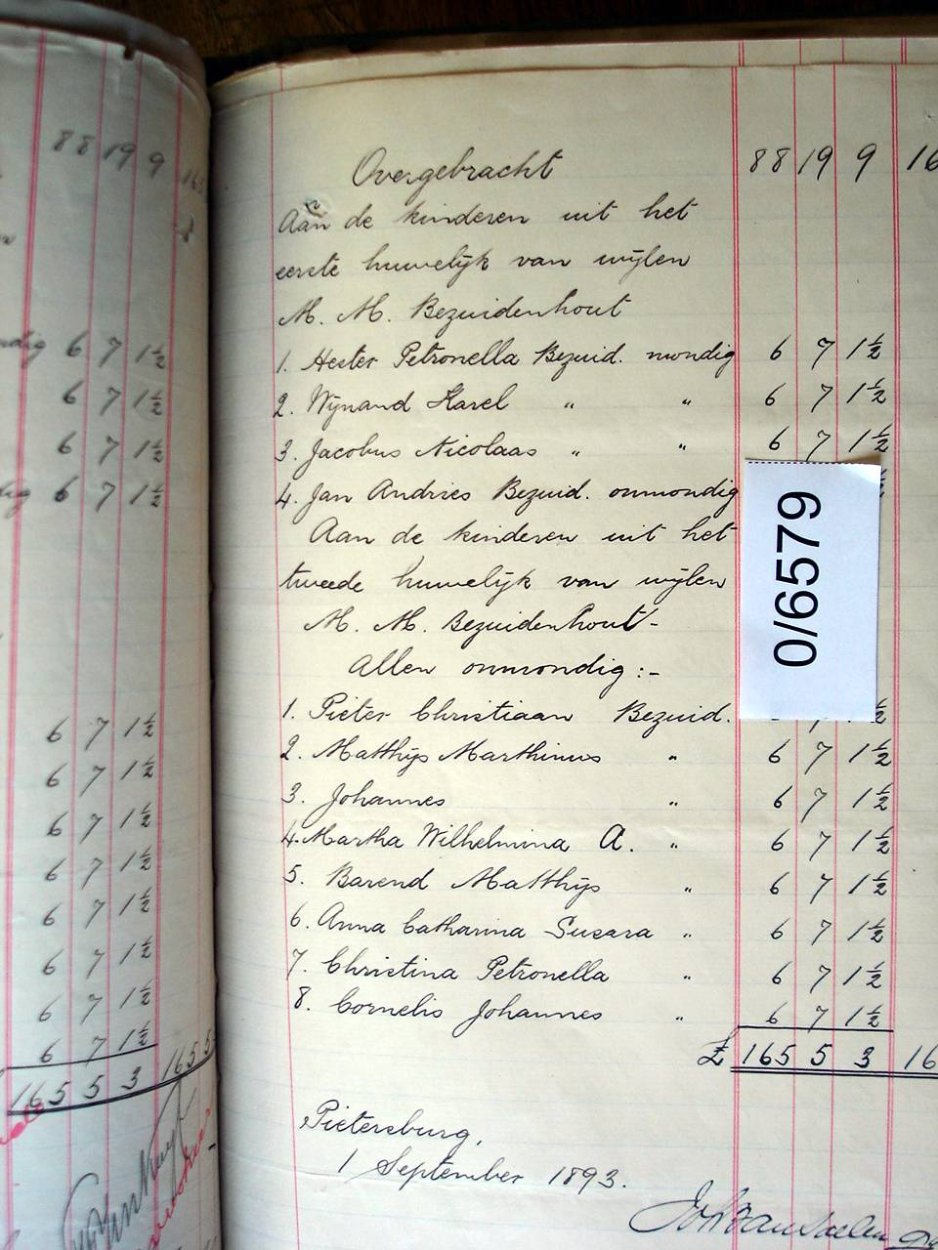 88 19 9
6 7 1½
6 7 1½
6 7 1½
6 7 1½
6 7 1½
6 7 1½
6 7 1½
6 7 1½
6 7 1½
6 7 1½
6 7 1½
6 7 1½
165 5 3 165 5
Overgebracht 88 19 9 16
Aan de kinderen uit het
eerste huwelijk van wijlen
M. M. Bezuidenhout
1. Hester Petronella Bezuid. mondig 6 7 1½
2. Wynand Karel " " 6 7 1½
3. Jacobus Nicolaas " " 6 7 1½
4. Jan Andries Bezuid. onmondig
Aan de kinderen uit het
tweede huwelijk van wijlen
M. M. Bezuidenhout-
Allen onmondig:-
0/6579
1. Pieter Christiaan Bezuid.
2. Matthijs Marthinus " 6 7 1½
3. Johannes " 6 7 1½
4. Martha Wilhelmina A. " 6 7 1½
5. Barend Matthijs " 6 7 1½
6. Anna Catharina Susara " 6 7 1½
7. Christina Petronella " 6 7 1½
8. Cornelis Johannes " 6 7 1½
£ 165 5 3 16
Pietersburg,
1 September 1893.